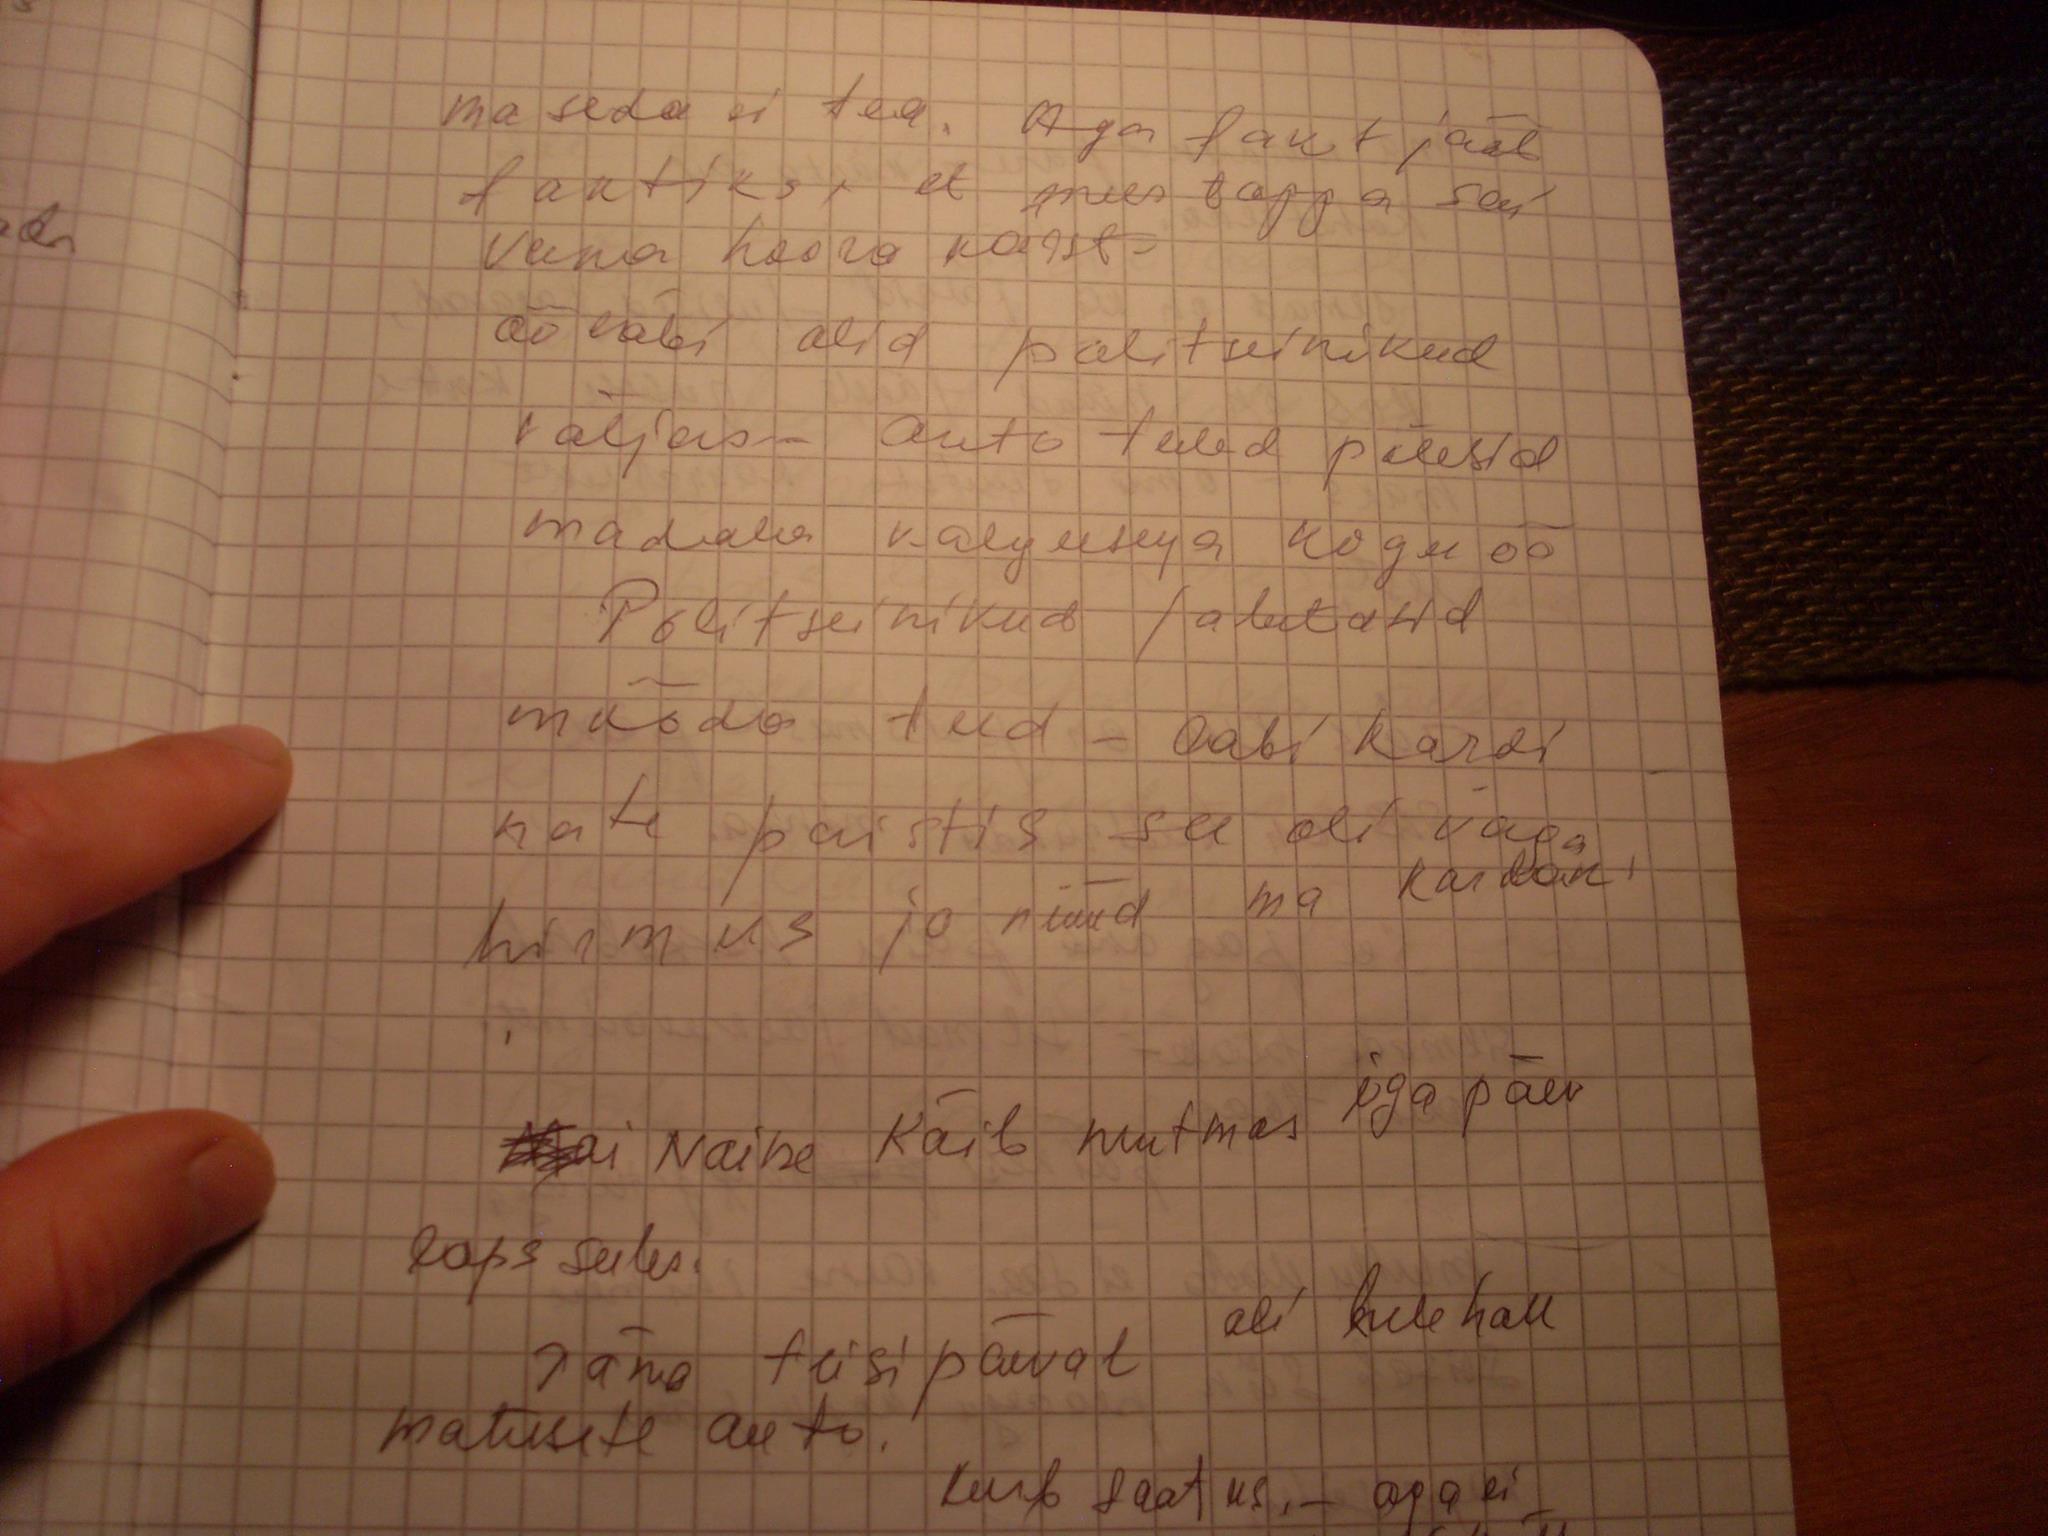 ma seda ei tea. Aga fakt jääb
faktiks, et mees tappa sai
vana hoora pärst-
öö läbi olid politseinikud
väljas- auto tuled põlesid
madala valgusega kogu öö
Politseinikud jalutasid
mööda teed - läbi kardi
nate paistis see oli väga
hirmus ja nüüd ma kardan
Naine käib nutmas iga päev
laps süles.
Täna teisipäeval oli hele hall
matusete auto.
Kurb saatus. - aga ei